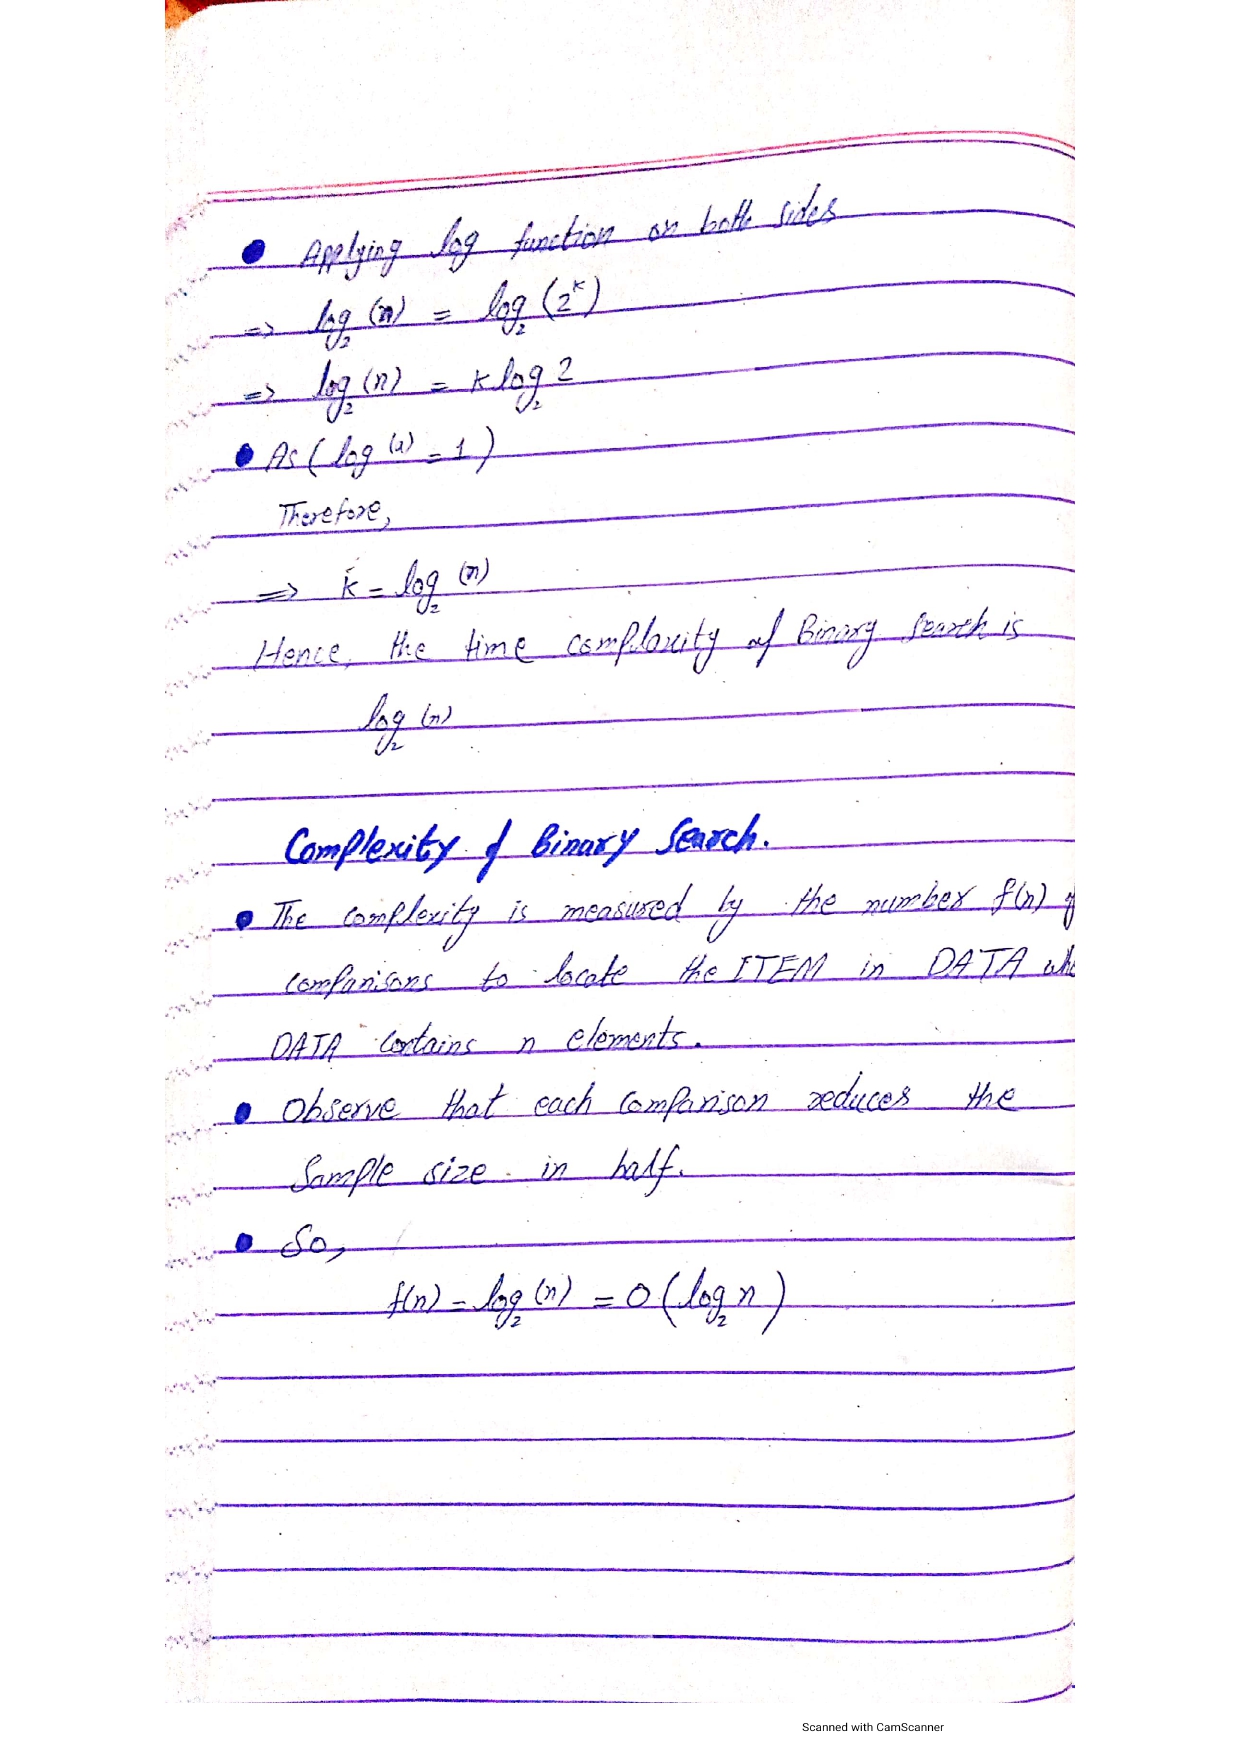 ● Applying log function on both sides
=> log₂(n) = log₂(2ᵏ)
=> log₂(n) = k log₂ 2
● As (log (a) = 1)
Therefore,
=> k = log₂(n)
Hence, the time complexity of Binary Search is
log₂(n)
Complexity of Binary Search.
● The complexity is measured by the number f(n) of
comparisons to locate the ITEM in DATA
DATA contains n elements.
● Observe that each comparison reduces the
Sample size in half.
● So,
f(n) = log₂(n) = O(log₂ n)
Scanned with CamScanner